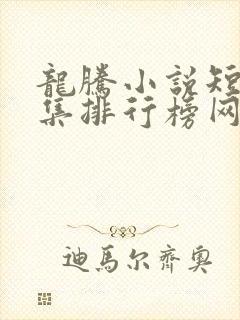 龍騰小說短
集排行榜网
迪馬尔齊奥